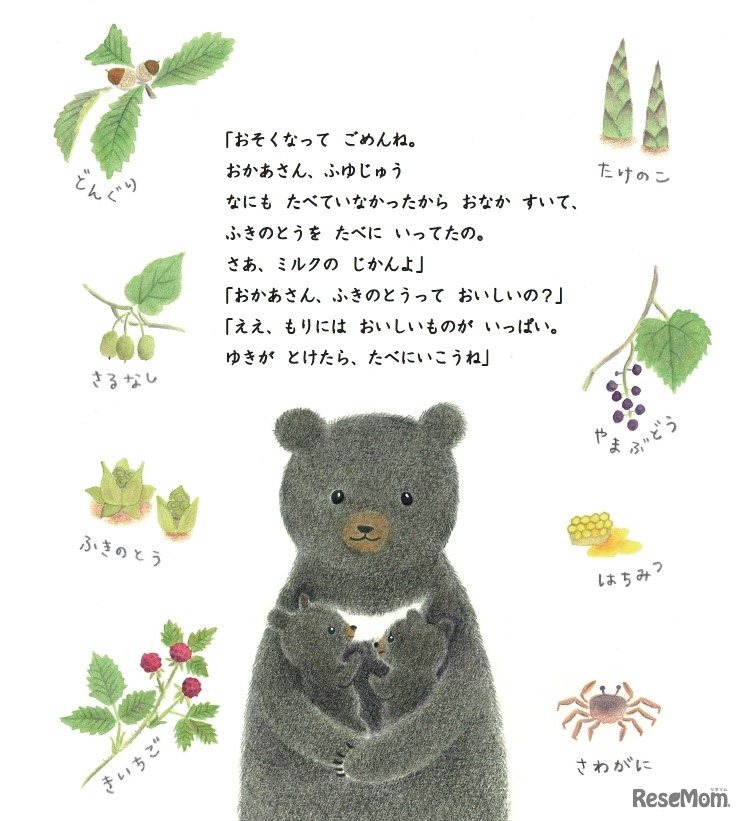 「おそくなって ごめんね。
おかあさん、ふゆじゅう
なにも たべていなかったから おなか すいて、
ふきのとうを たべに いってたの。
さあ、ミルクの じかんよ」
「おかあさん、ふきのとうって おいしいの？」
「ええ、もりには おいしいものが いっぱい。
ゆきが とけたら、たべにいこうね」
どんぐり
さるなし
ふきのとう
きいちご
たけのこ
やまぶどう
はちみつ
さわがに
リセマム
ReseMom.